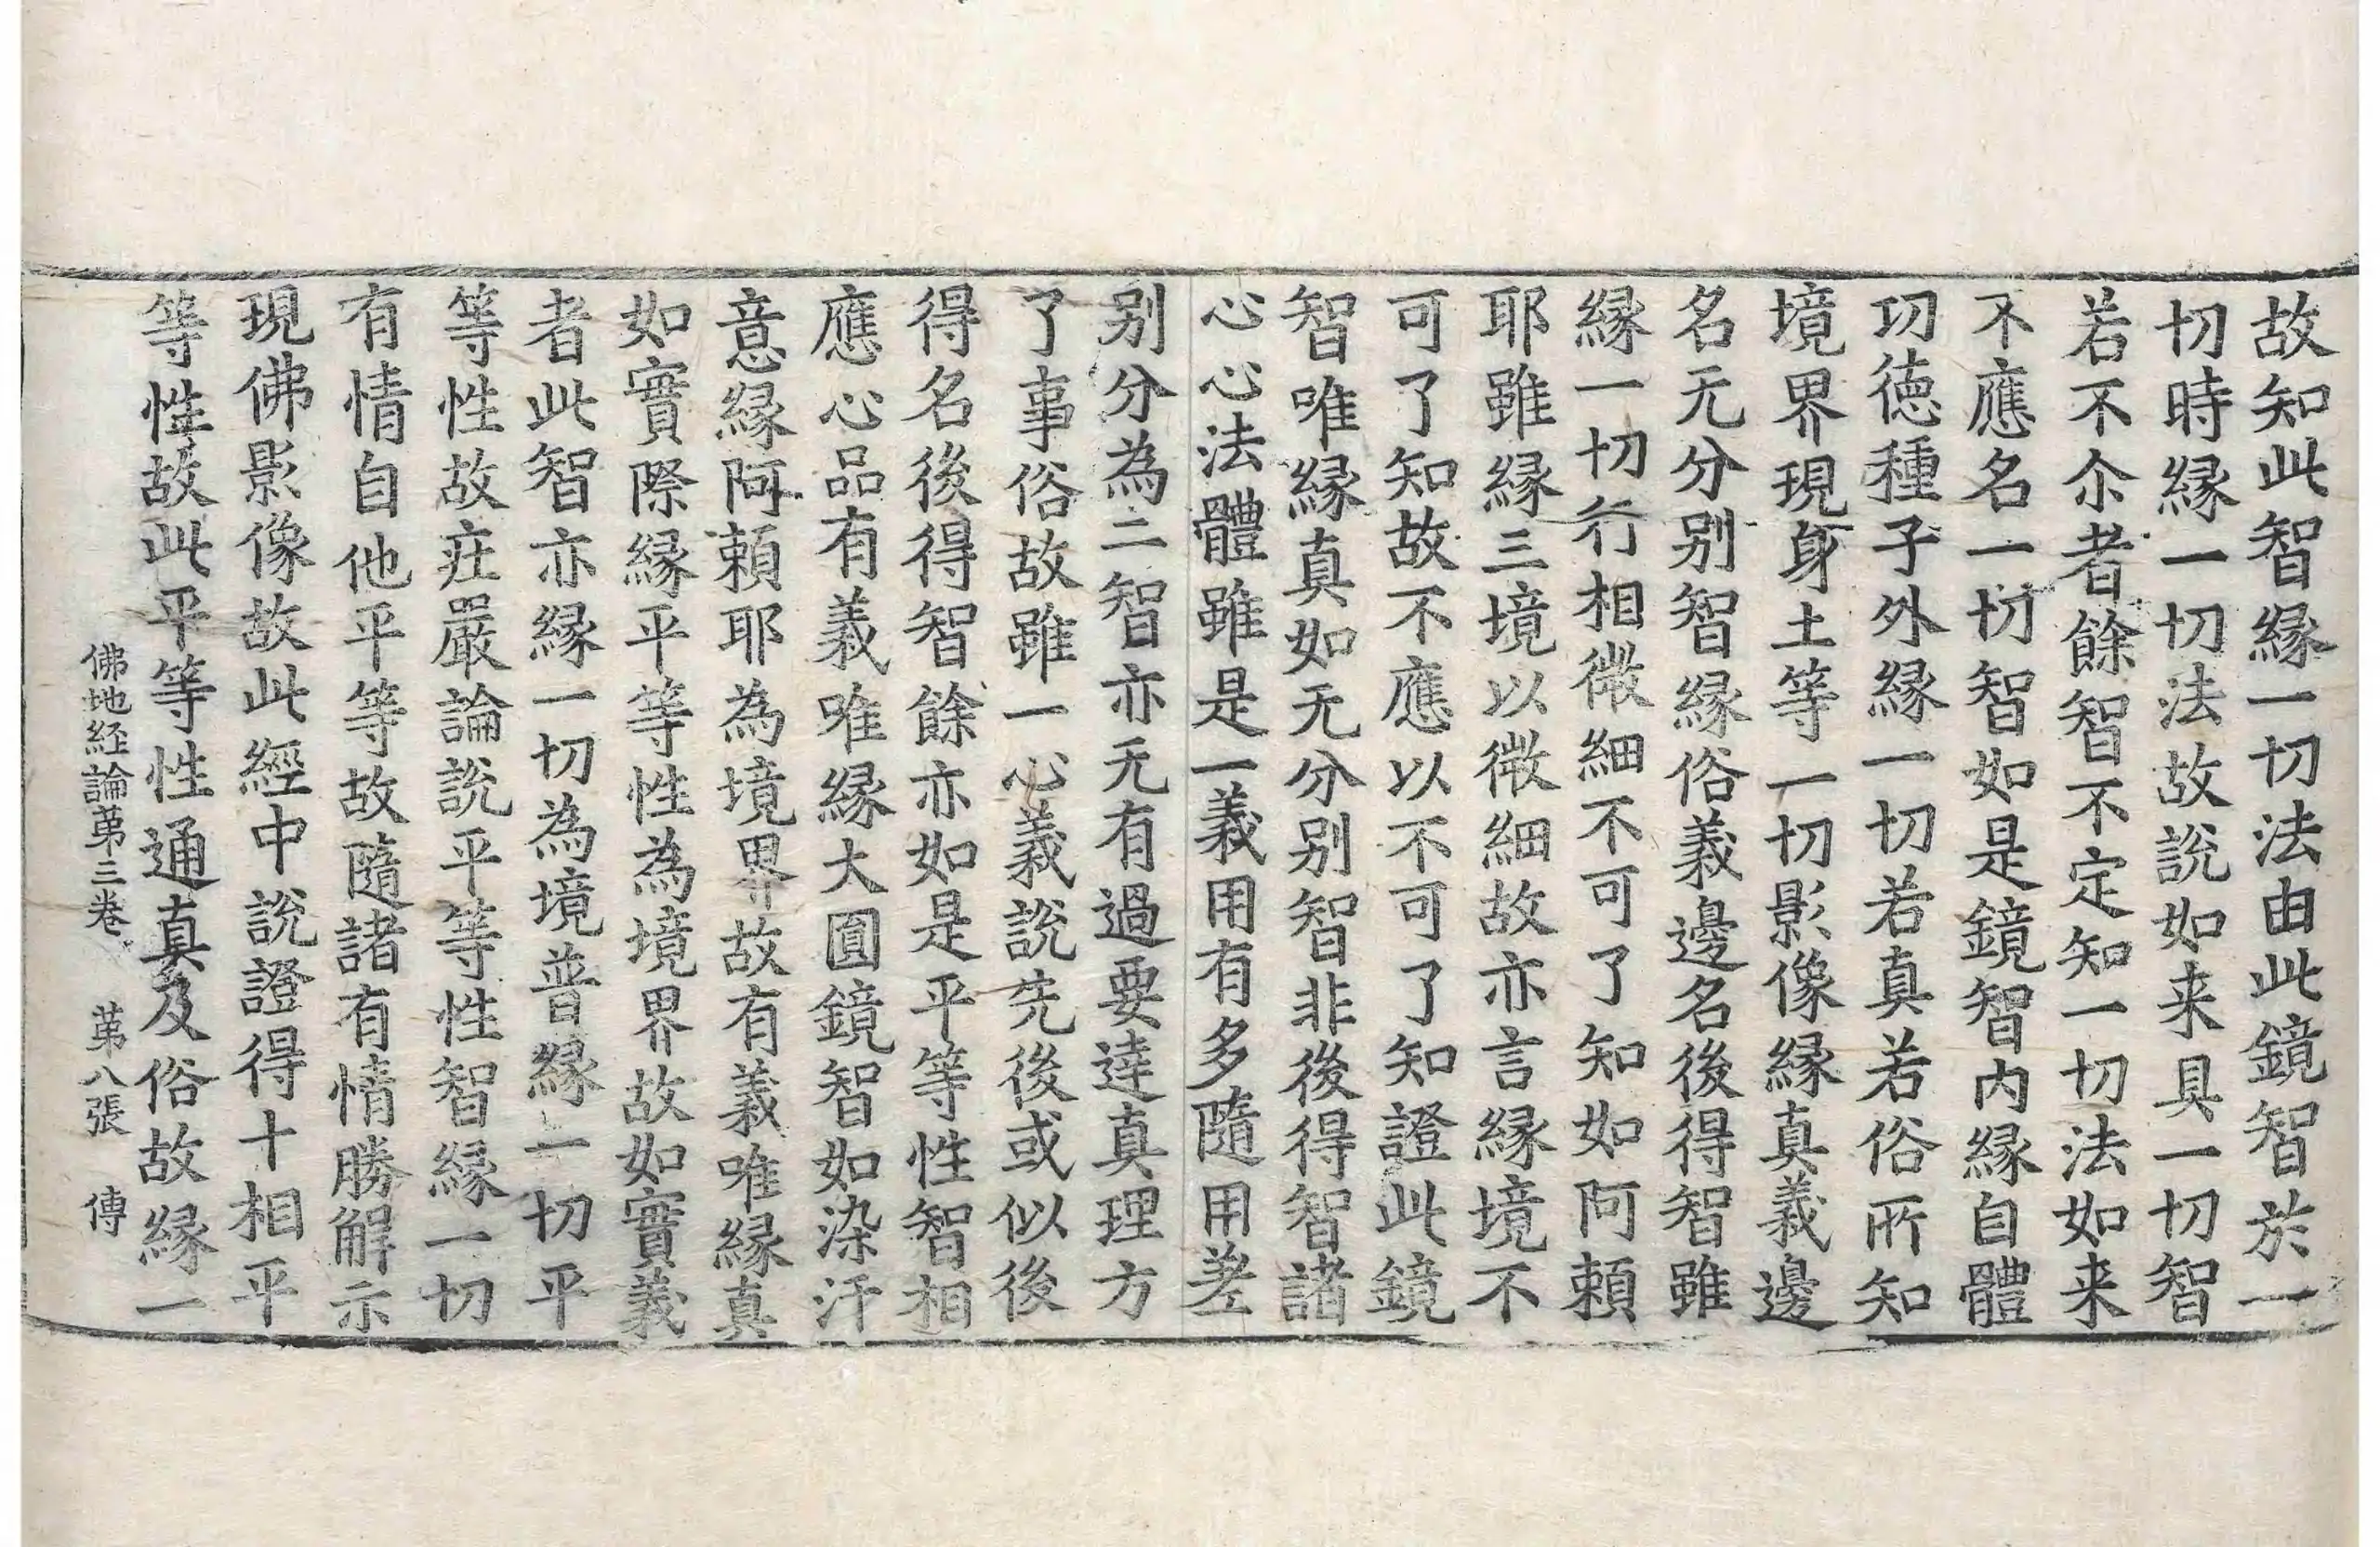 故知此智縁一切法由此鏡智於一
切時縁一切法故說如来具一切智
若不尒者餘智不定知一切法如来
不應名一切智如是鏡智內縁自體
功徳種子外縁一切若真若俗所知
境界現身土等一切影像縁真義邊
名无分别智縁俗義邊名後得智雖
縁一切行相微細不可了知如阿頼
耶雖縁三境以微細故亦言縁境不
可了知故不應以不可了知證此鏡
智唯縁真如无分别智非後得智諸
心心法體雖是一義用有多隨用差
别分為二智亦无有過要達真理方
了事俗故雖一心義說先後或似後
得名後得智餘亦如是平等性智相
應心品有義唯縁大圓鏡智如染汙
意縁阿頼耶為境界故有義唯縁真
如實際縁平等性為境界故如實義
者此智亦縁一切為境普縁一切平
等性故疘嚴論說平等性智縁一切
有情自他平等故隨諸有情勝解示
現佛影像故此經中說證得十相平
等性故此平等性通真及俗故縁一
佛地経論苐三卷 苐八張 傳